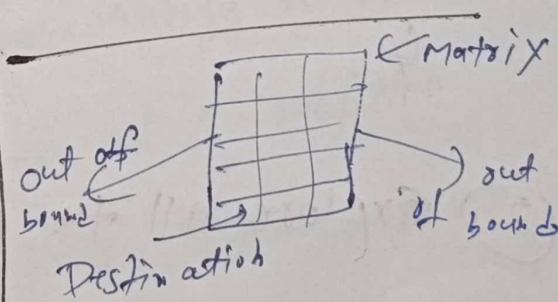 Matrix
out of
bound
out
of bound
Destination